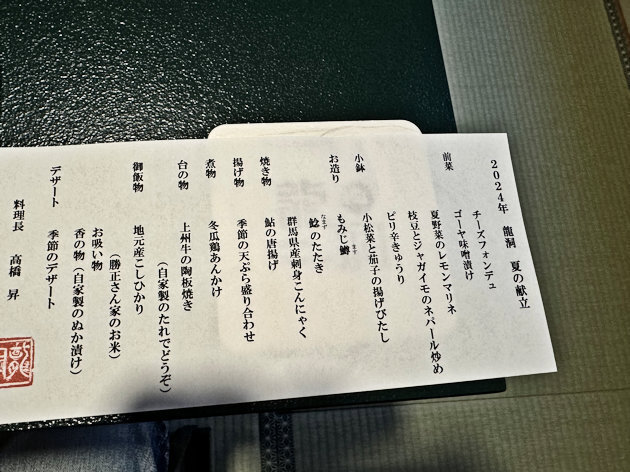 2024年 龍洞 夏の献立
前菜 チーズフォンデュ
ゴーヤ味噌漬け
夏野菜のレモンマリネ
枝豆とジャガイモのネパール炒め
ピリ辛きゅうり
小鉢 小松菜と茄子の揚げびたし
お造り もみじ鱒 ます
鯰のたたき なまず
群馬県産刺身こんにゃく
焼き物 鮎の唐揚げ
揚げ物 季節の天ぷら盛り合わせ
煮物 冬瓜鶏あんかけ
台の物 上州牛の陶板焼き
(自家製のたれでどうぞ)
御飯物 地元産こしひかり
(勝正さん家のお米)
お吸い物
香の物(自家製のぬか漬け)
デザート 季節のデザート
料理長 高橋 昇